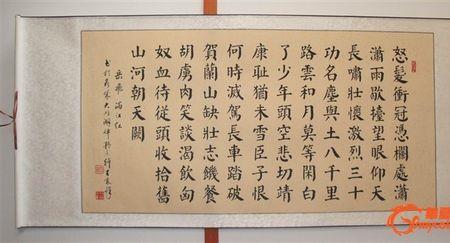 怒髮衝冠憑欄處瀟
瀟雨歇擡望眼仰天
長嘯壯懷激烈三十
功名塵與土八千里
路雲和月莫等閑白
了少年頭空悲切靖
康耻猶未雪臣子恨
何時滅駕長車踏破
賀蘭山缺壯志饑餐
胡虜肉笑談渴飲匈
奴血待從頭收拾舊
山河朝天闕
岳飛 滿江紅